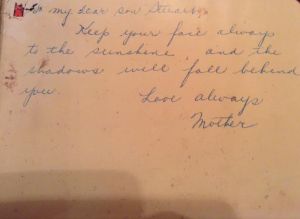 To my dear son
Keep your face always
to the sunshine, and the
shadows will fall behind
you.
Love always
Mother